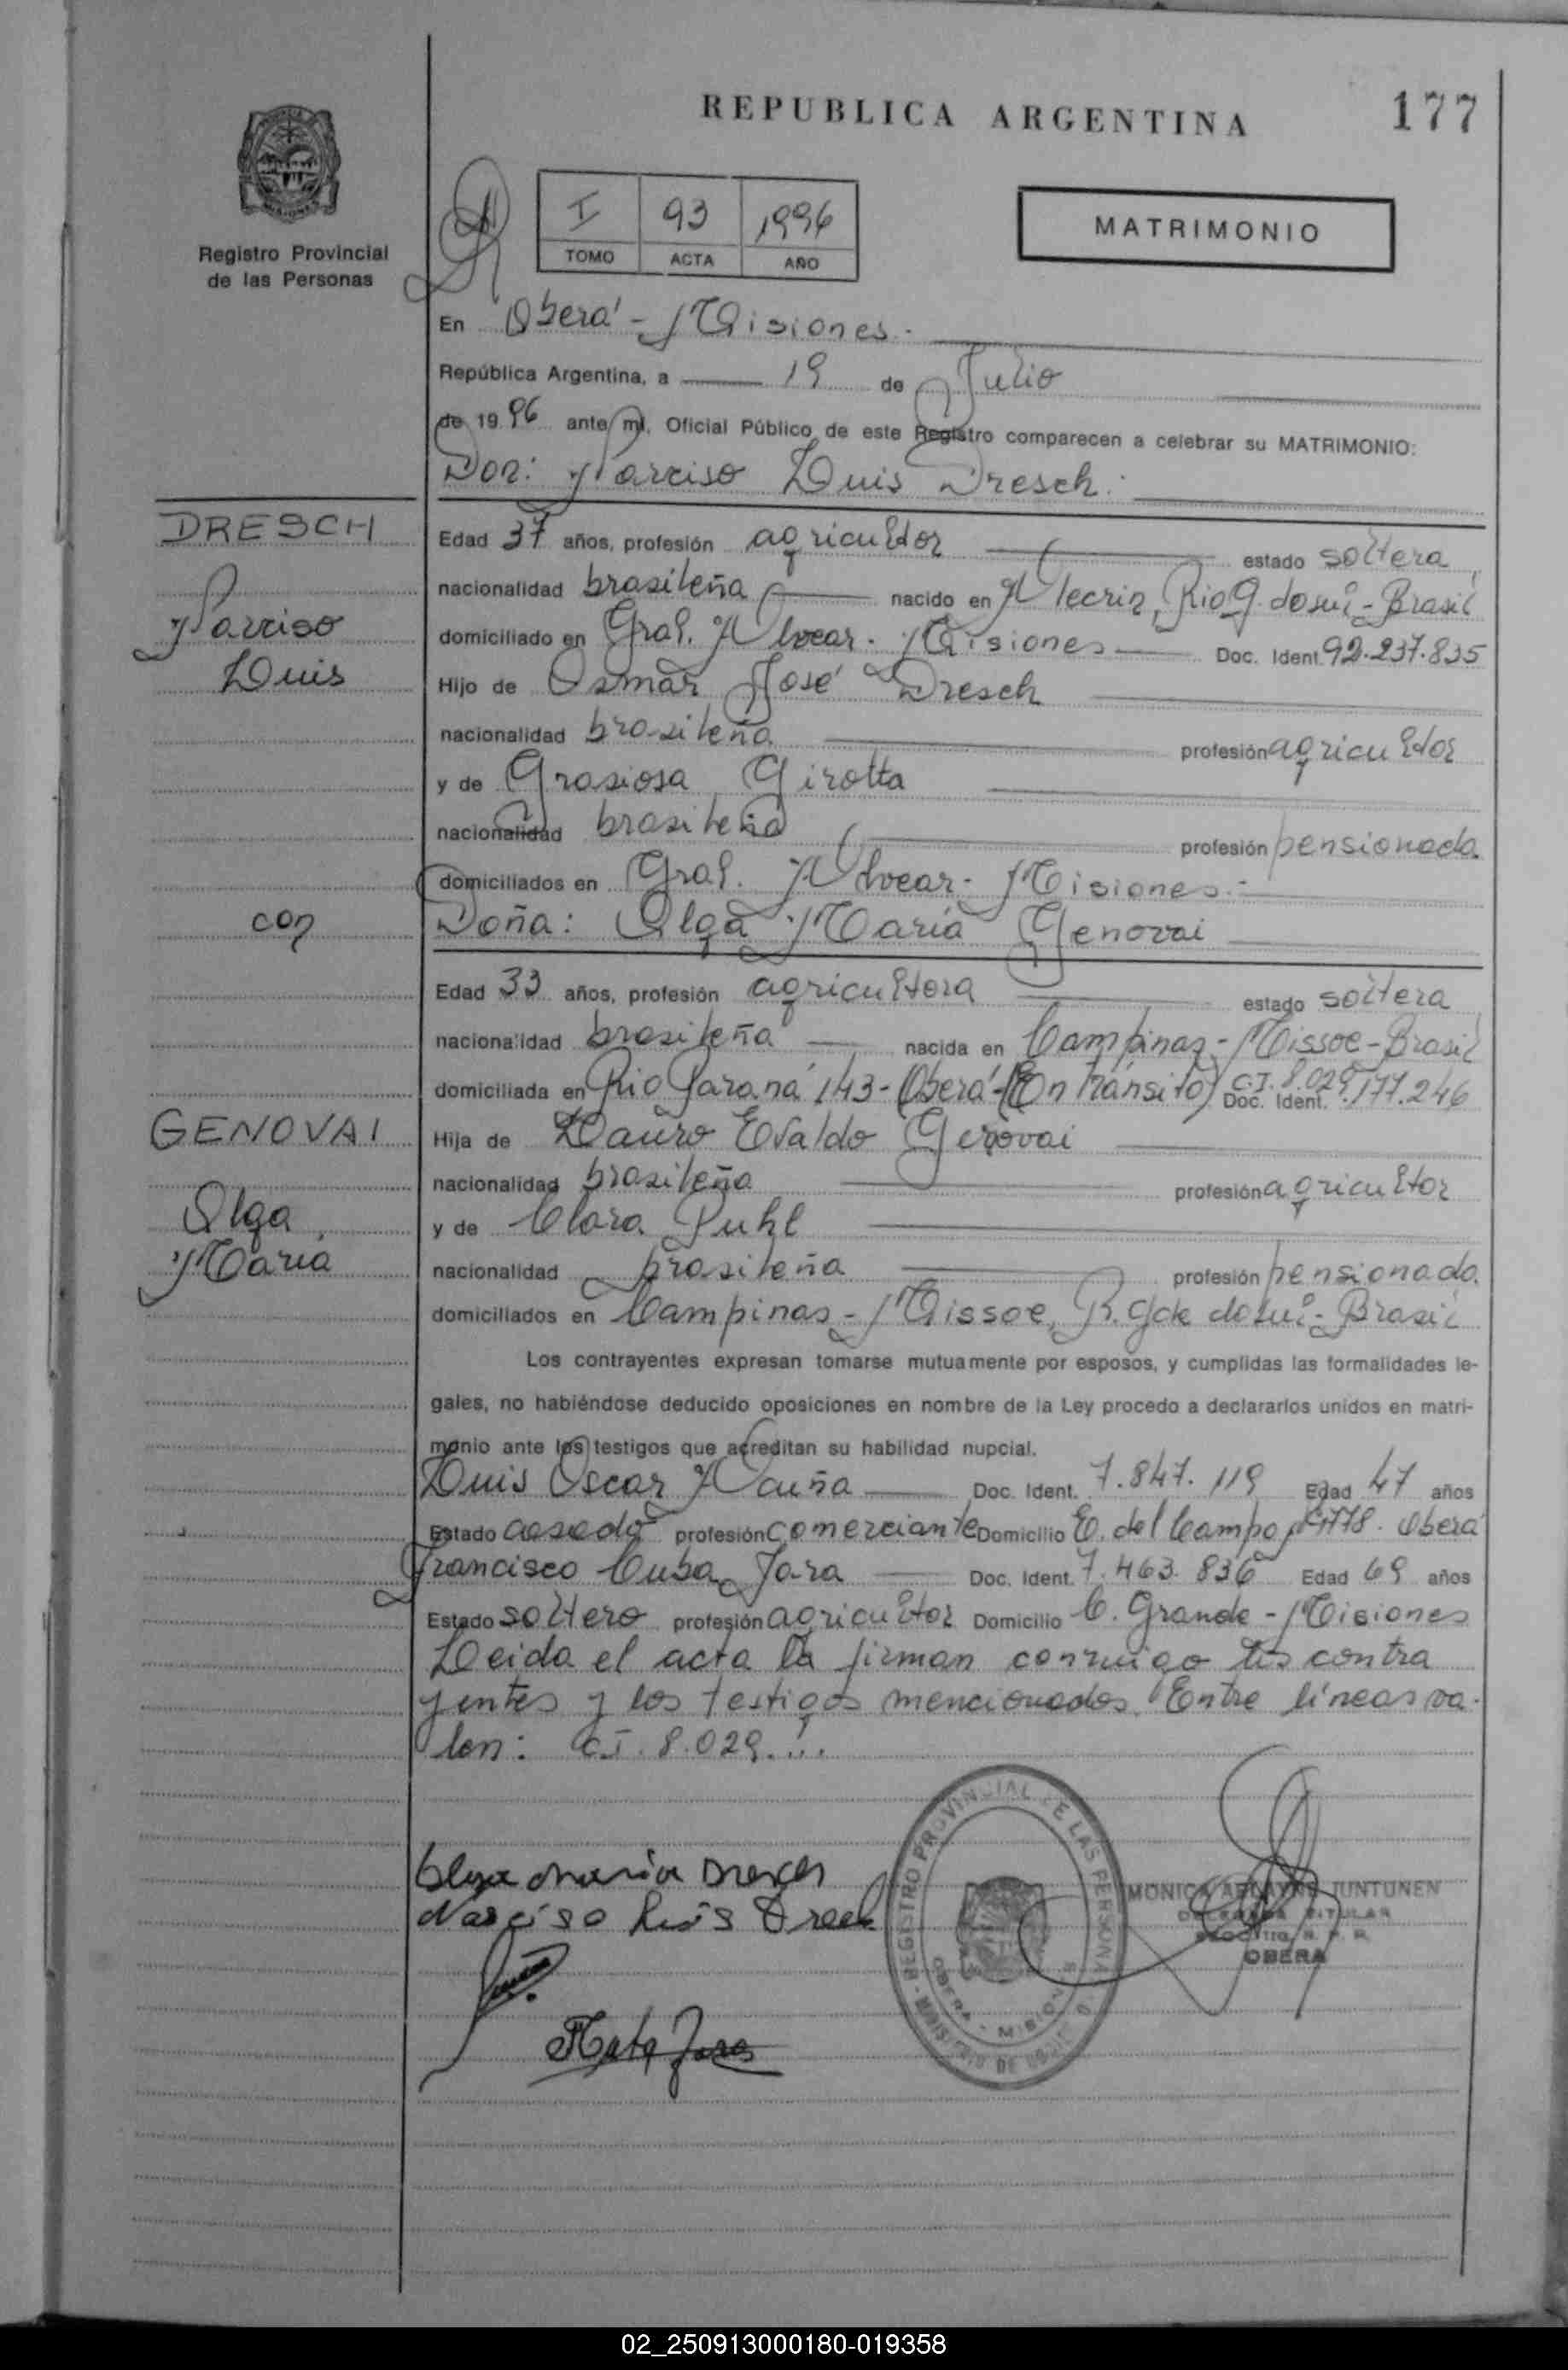 REPUBLICA ARGENTINA
177
Registro Provincial
de las Personas
I 93 1996
TOMO ACTA AÑO
MATRIMONIO
En Oberá - Misiones.-
República Argentina, a 19 de Julio
de 19 96 ante mí, Oficial Público de este Registro comparecen a celebrar su MATRIMONIO:
Don: Narciso Luis Dresch.
DRESCH
Narciso
Luis
con
GENOVAI
Olga
María
Edad 37 años, profesión agricultor estado soltera
nacionalidad brasileña nacido en Alecrin, Rio G. do sul - Brasil
domiciliado en Gral. Alvear. Misiones Doc. Ident. 92.237.835
Hijo de Osmar José Dresch
nacionalidad brasileña profesión agricultor
y de Grasiosa Girotta
nacionalidad brasileña profesión pensionada.
domiciliados en Gral. Alvear - Misiones.-
Doña: Olga María Genovai
Edad 33 años, profesión agricultora estado soltera
nacionalidad brasileña nacida en Campinas - Missoe - Brasil
domiciliada en Rio Paraná 143 - Oberá - (En tránsito) C.I. 8.029. Doc. Ident. 177.246
Hija de Lauro Evaldo Genovai
nacionalidad brasileña profesión agricultor
y de Clara Puhl
nacionalidad brasileña profesión pensionada.
domiciliados en Campinas - Missoe, R. Gde do sul - Brasil
Los contrayentes expresan tomarse mutuamente por esposos, y cumplidas las formalidades le-
gales, no habiéndose deducido oposiciones en nombre de la Ley procedo a declararlos unidos en matri-
monio ante los testigos que acreditan su habilidad nupcial.
Luis Oscar Acuña Doc. Ident. 7.847.119 Edad 47 años
Estado casado profesión comerciante Domicilio E. del Campo 778. Oberá
Francisco Cuba Jara Doc. Ident. 7.463.836 Edad 69 años
Estado soltero profesión agricultor Domicilio C. Grande - Misiones
Leida el acta la firman conmigo los contra
yentes y los testigos mencionados. Entre líneas va-
len: C.I. 8.029...
Olga maria Dresch
Narciso Luis Dresch
Jara
REGISTRO PROVINCIAL DE LAS PERSONAS
OBERA - MISIONES
MONICA JUNTUNEN
TITULAR
OBERA
02_250913000180-019358